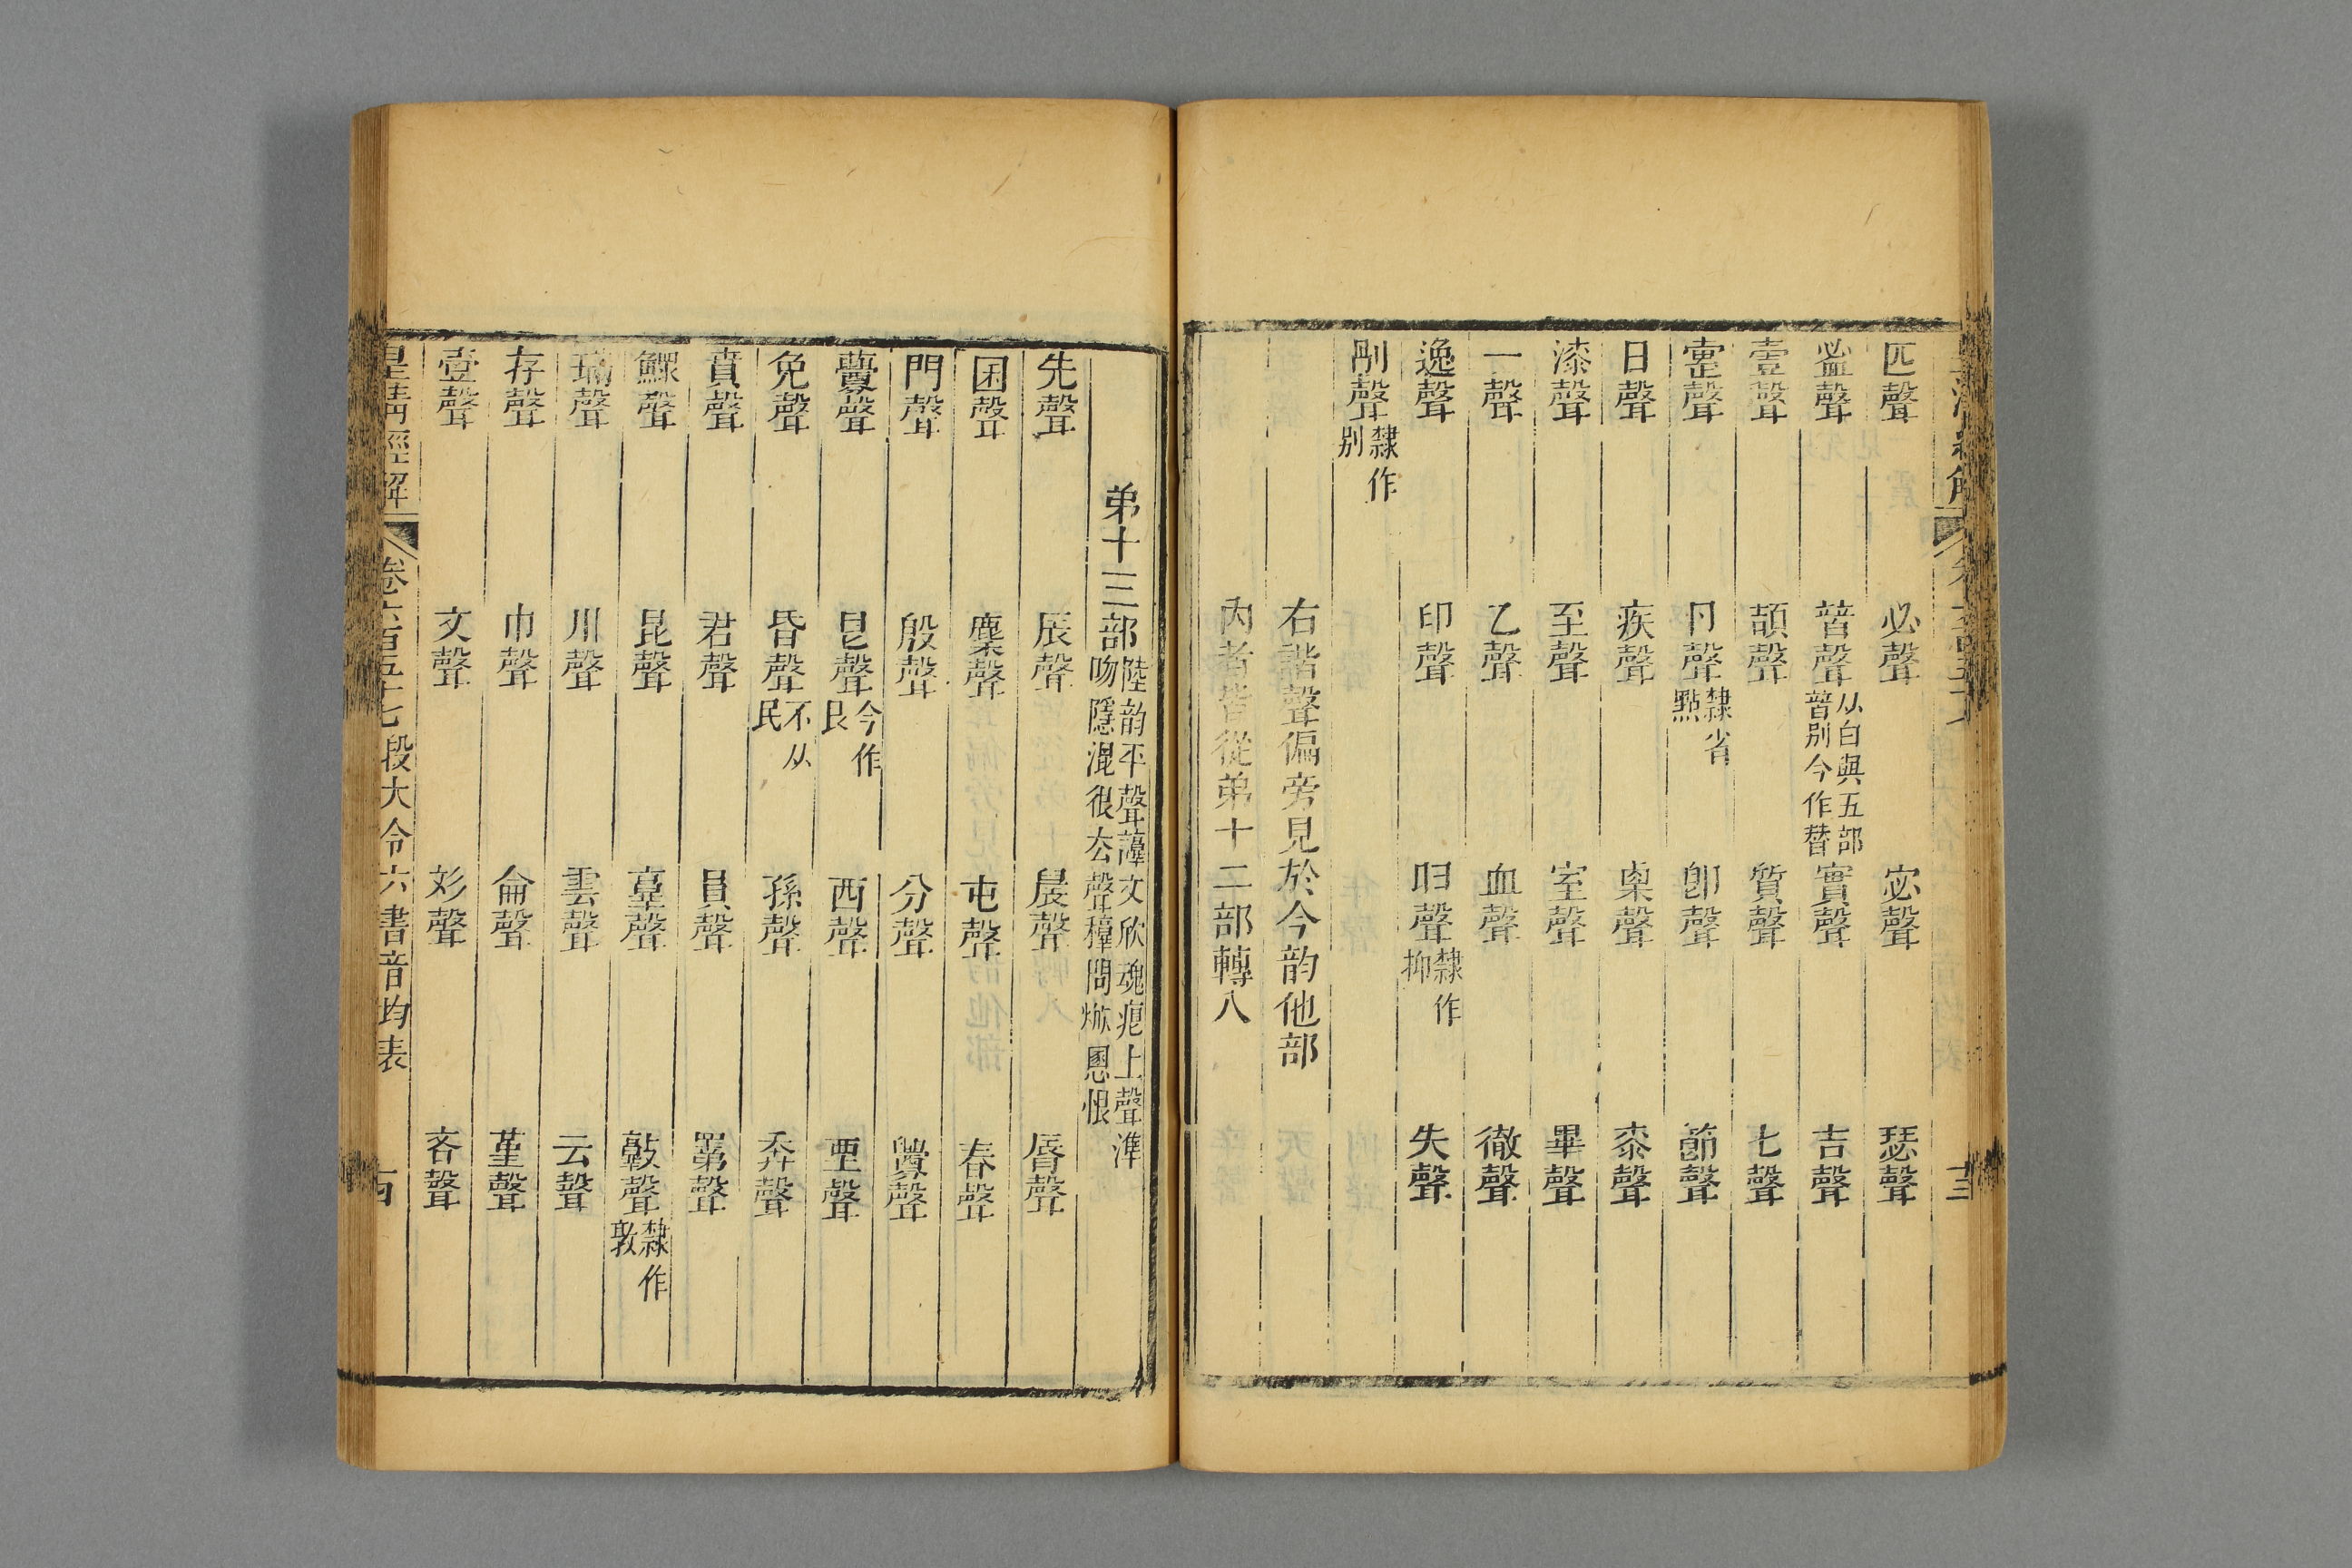 匹聲 必聲 宓聲 瑟聲
𥁑聲 暜聲 从白與五部 暜別今作替 實聲 吉聲
壹聲 頡聲 質聲 七聲
疐聲 卪聲 隸省點 卽聲 節聲
日聲 疾聲 㮚聲 桼聲
漆聲 至聲 室聲 畢聲
一聲 乙聲 血聲 徹聲
逸聲 印聲 𢑏聲 隸作抑 失聲
𠛰聲 隸作別
右諧聲偏旁見於今韵他部
內者皆從弟十二部轉入
十三
弟十三部 陸韵平聲諄文欣魂痕上聲準 吻隱混很去聲稕問焮慁恨
先聲 辰聲 晨聲 脣聲
困聲 麇聲 屯聲 春聲
門聲 殷聲 分聲 釁聲
虋聲 㫐聲 今作艮 西聲 垔聲
免聲 昏聲 不从民 孫聲 奔聲
賁聲 君聲 員聲 𦌾聲
鰥聲 昆聲 𦎫聲 𢿘聲 隸作敦
璊聲 川聲 雲聲 云聲
存聲 巾聲 侖聲 堇聲
壼聲 文聲 彣聲 吝聲
皇淸經解 卷六百五十七 段大令六書音均表 古